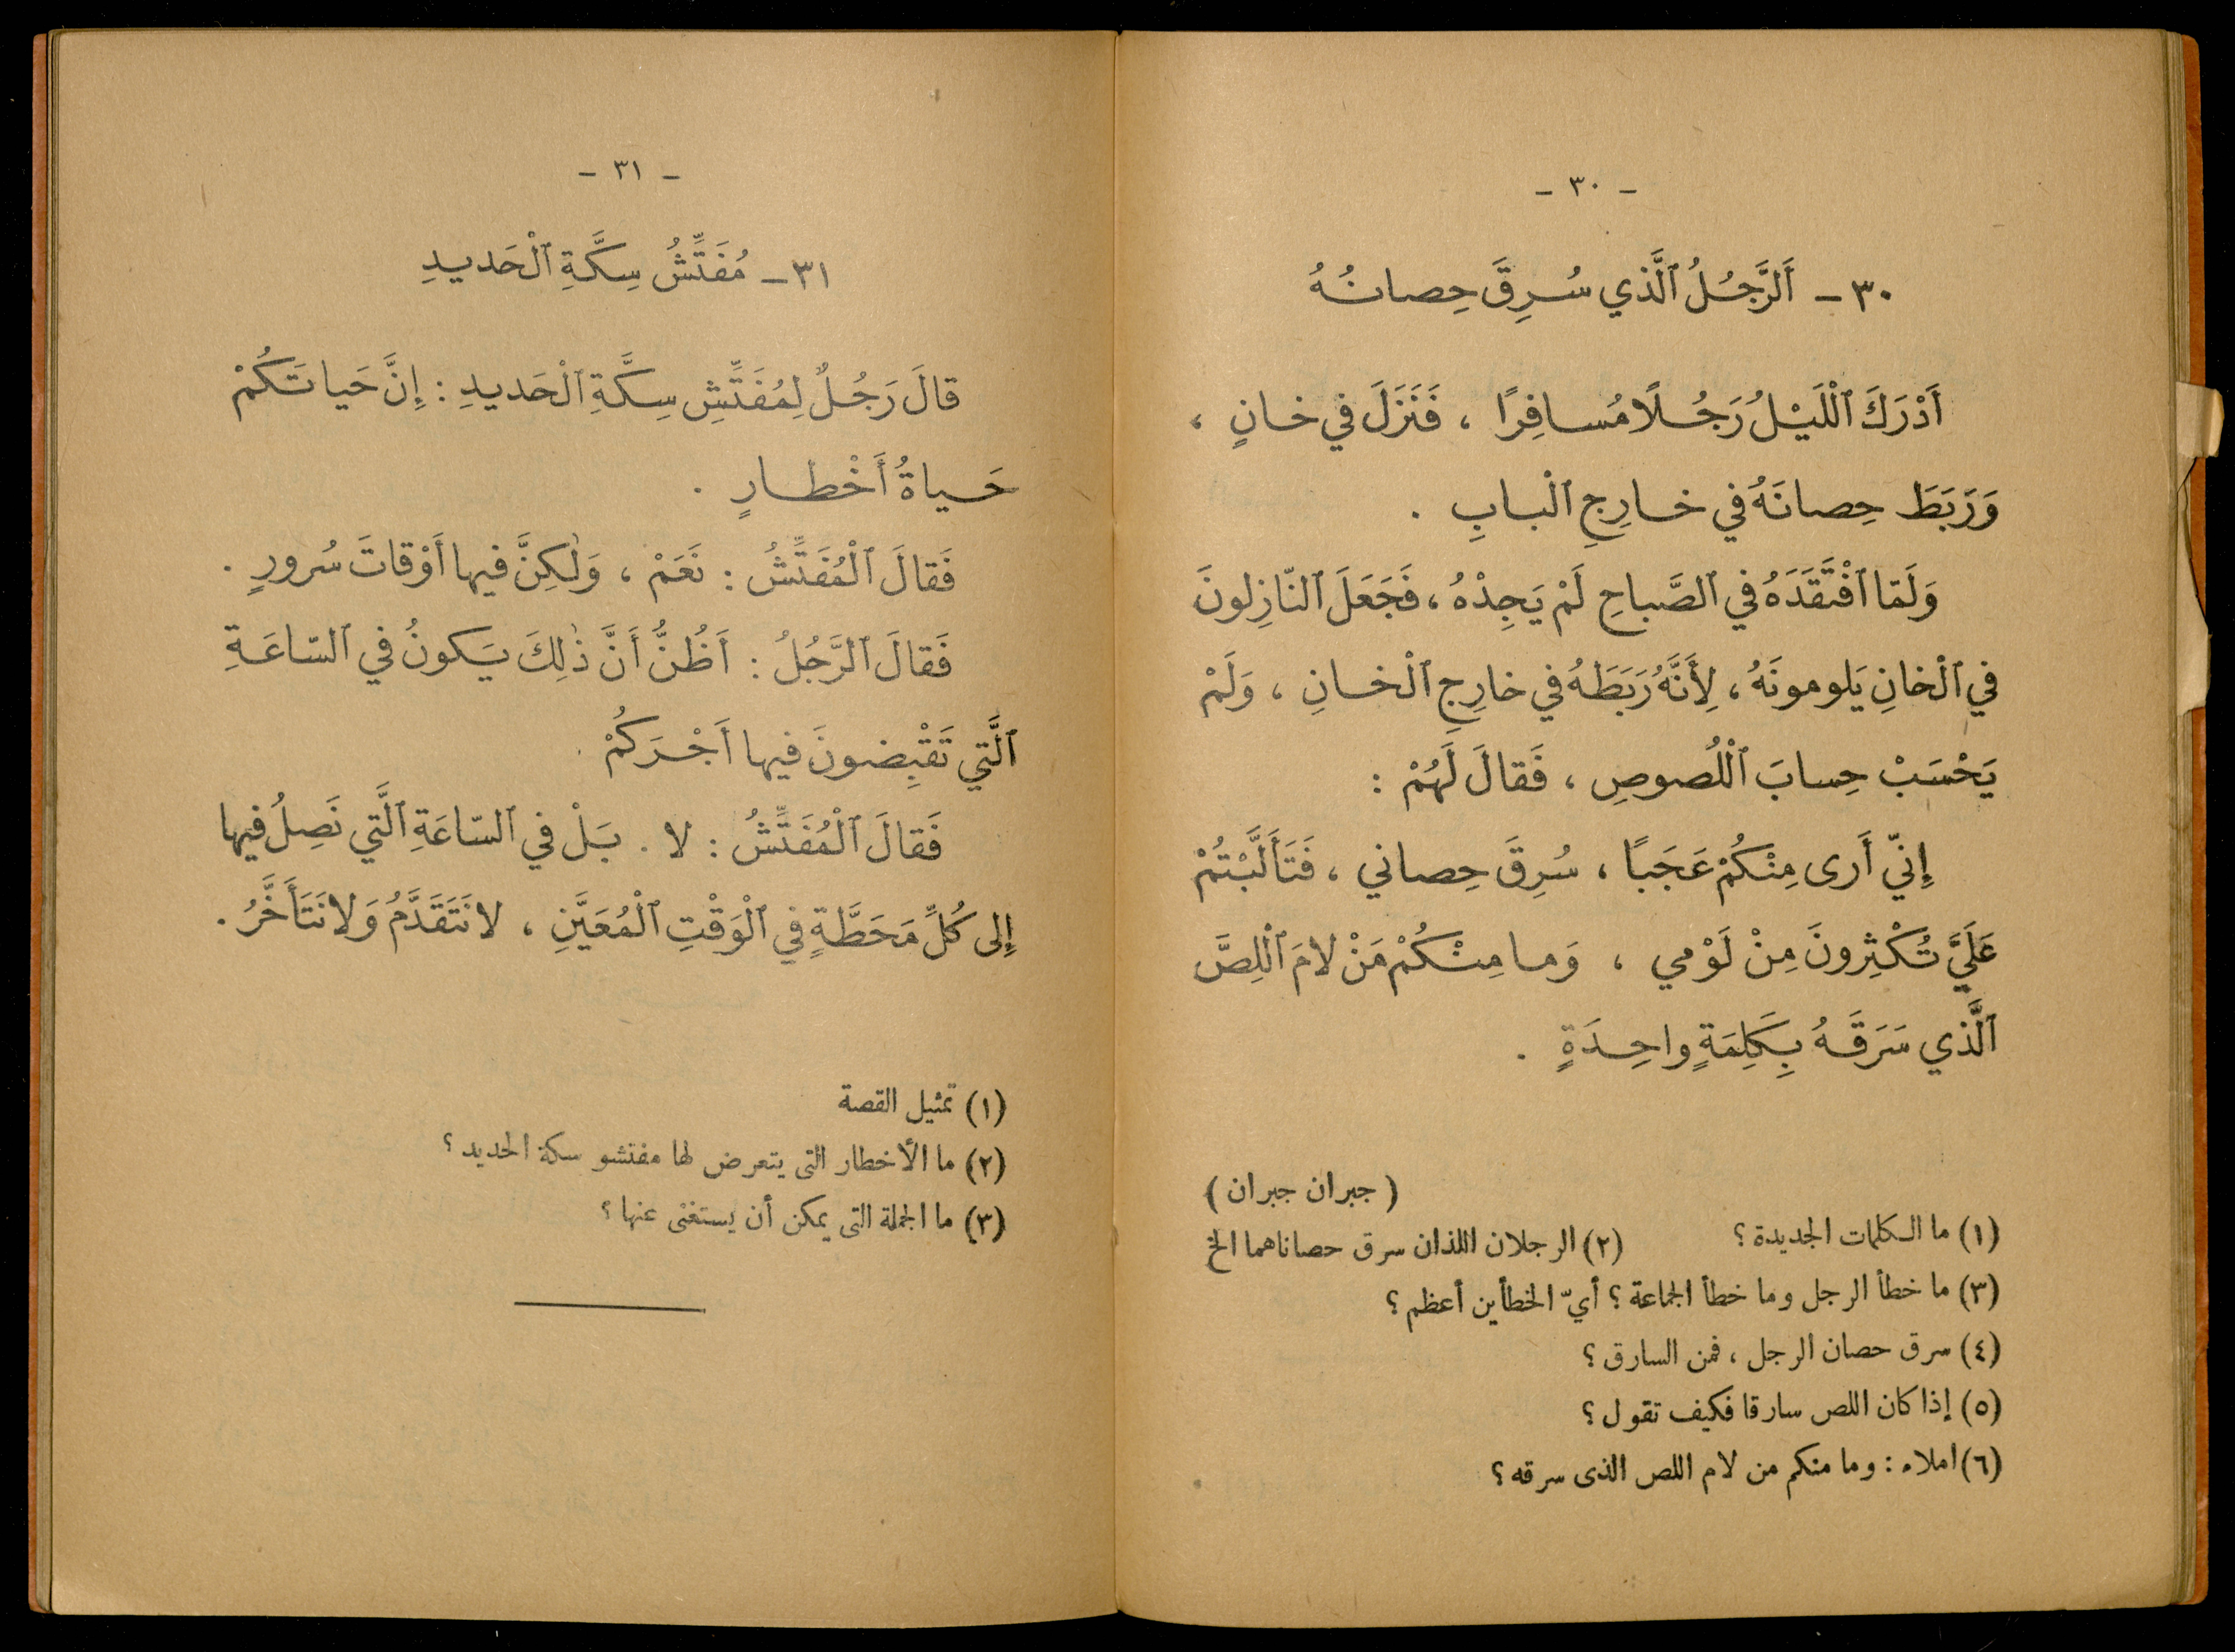 - ٣٠ -
٣٠ - أَلرَّجُلُ ٱلَّذي سُرِقَ حِصانُهُ
أَدْرَكَ ٱللَّيْلُ رَجُلًا مُسافِرًا ، فَنَزَلَ في خانٍ ،
وَرَبَطَ حِصانَهُ في خارِجِ ٱلْبابِ .
وَلَمّا ٱفْتَقَدَهُ في ٱلصَّباحِ لَمْ يَجِدْهُ ، فَجَعَلَ ٱلنّازِلونَ
في ٱلْخانِ يَلومونَهُ ، لِأَنَّهُ رَبَطَهُ في خارِجِ ٱلْخانِ ، وَلَمْ
يَحْسَبْ حِسابَ ٱللُّصوصِ ، فَقالَ لَهُمْ :
إِنّي أَرى مِنْكُمْ عَجَبًا ، سُرِقَ حِصاني ، فَتَأَلَّبْتُمْ
عَلَيَّ تُكْثِرونَ مِنْ لَوْمي ، وَما مِنْكُمْ مَنْ لامَ ٱللِّصَّ
ٱلَّذي سَرَقَهُ بِكَلِمَةٍ واحِدَةٍ .
( جبران جبران )
(١) ما الكلمات الجديدة ؟ (٢) الرجلان اللذان سرق حصاناهما الخ
(٣) ما خطأ الرجل وما خطأ الجماعة ؟ أيّ الخطأين أعظم ؟
(٤) سرق حصان الرجل ، فمن السارق ؟
(٥) إذا كان اللص سارقا فكيف تقول ؟
(٦) املاء : وما منكم من لام اللص الذى سرقه ؟
- ٣١ -
٣١ - مُفَتِّشُ سِكَّةِ ٱلْحَديدِ
قالَ رَجُلٌ لِمُفَتِّشِ سِكَّةِ ٱلْحَديدِ : إِنَّ حَياتَكُمْ
حَياةُ أَخْطارٍ .
فَقالَ ٱلْمُفَتِّشُ : نَعَمْ ، وَلٰكِنَّ فيها أَوْقاتَ سُرورٍ .
فَقالَ ٱلرَّجُلُ : أَظُنُّ أَنَّ ذٰلِكَ يَكونُ في ٱلسّاعَةِ
ٱلَّتي تَقْبِضونَ فيها أَجْرَكُمْ .
فَقالَ ٱلْمُفَتِّشُ : لا . بَلْ في ٱلسّاعَةِ ٱلَّتي نَصِلُ فيها
إِلى كُلِّ مَحَطَّةٍ في ٱلْوَقْتِ ٱلْمُعَيَّنِ ، لا نَتَقَدَّمُ وَلا نَتَأَخَّرُ .
(١) تمثيل القصة
(٢) ما الأخطار التى يتعرض لها مفتشو سكة الحديد ؟
(٣) ما الجملة التى يمكن أن يستغنى عنها ؟